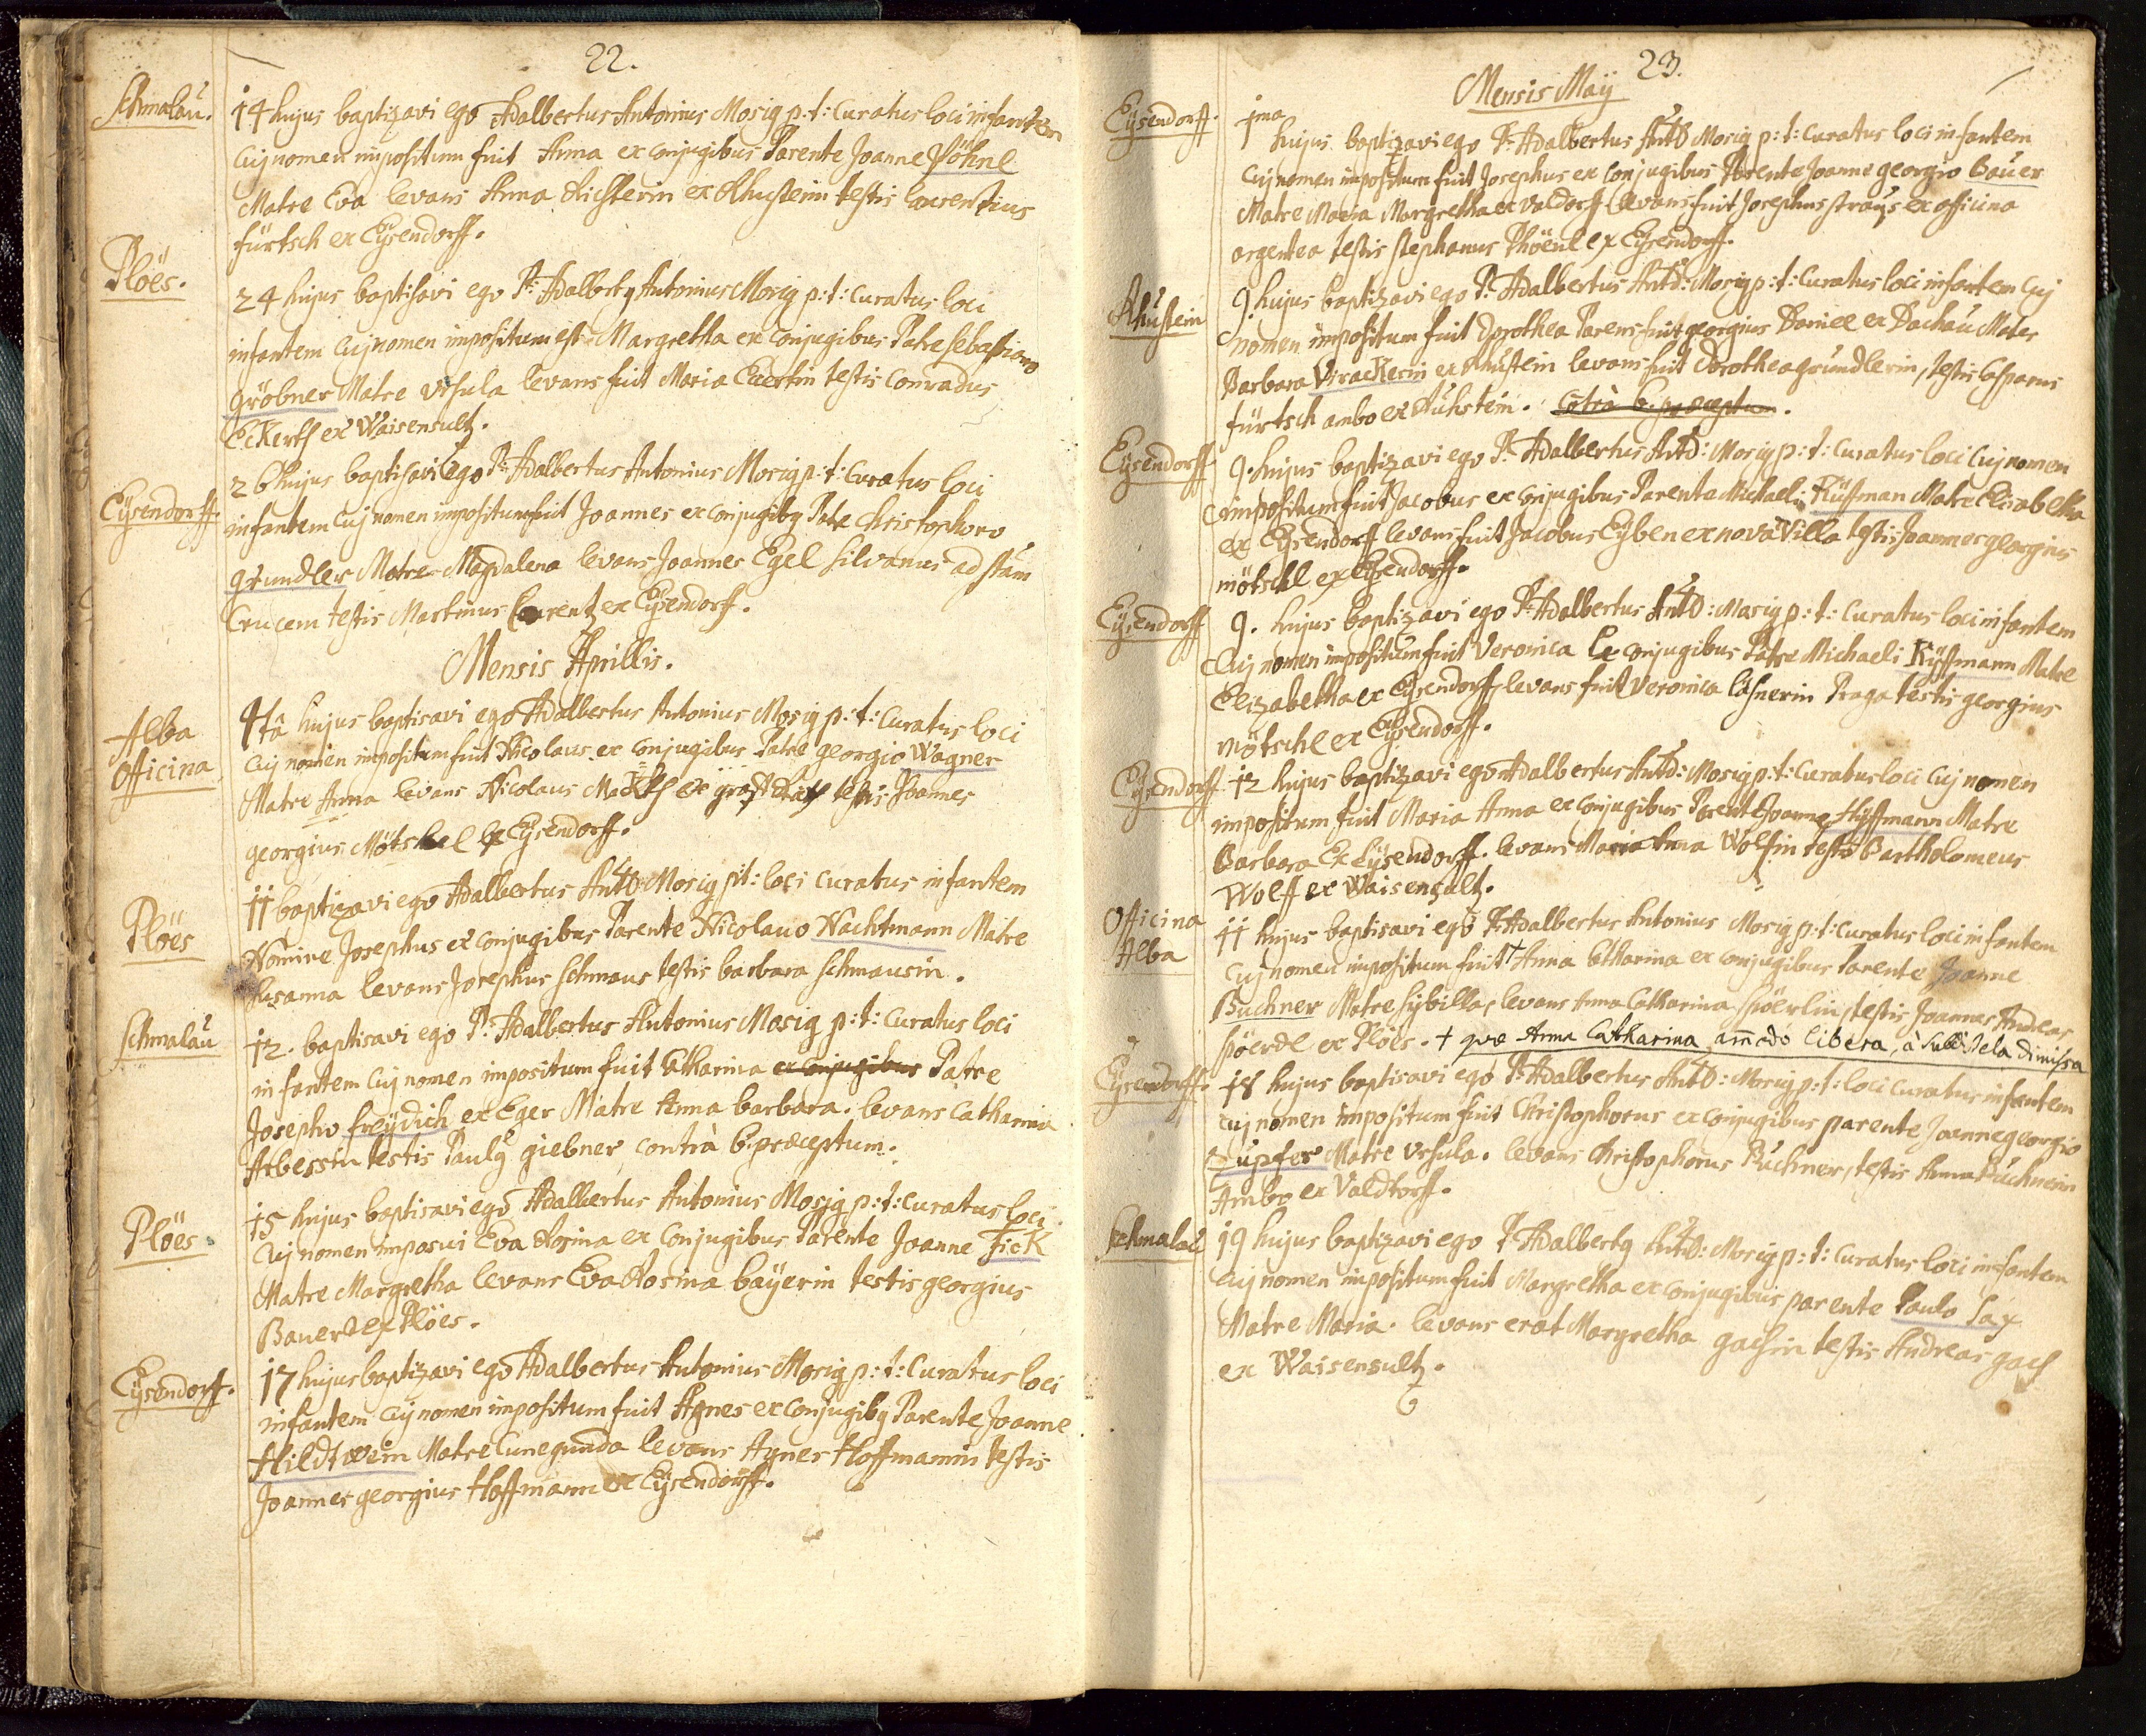 22.
Schmalaŭ.
14 hujus baptizavi ego Adalbertus Antonius Mosig p: t: Curatus loci infantem
Cuj nomen impositum fuit Anna ex conjugibus Parente Joanne Pöhnl
Matre Eva levans Anna Richterin ex Rhustein testis laurentius
fürtsch ex Eÿsendorff.
Plöes.
24 hujus baptisavi ego P: Adalbertq Antonius Mosig p: t: Curatus loci
infantem Cuj nomen impositum est Margretha ex conjugibus Patre sebastiano
gröbner Matre Ursula levans fuit Maria testis Conradus
Eckerth ex Waisensultz.
Eÿsendorff.
26 hujus baptisavi ego P: Adalbertus Antonius Mosig p: t: Curatus loci
infantem Cuj nomen impositum fuit Joannes ex conjugibq Patre Christophoro
grundler Matre Magdalena levans Joannes Egel silvanus ad stam
Crucem testis Martinus Lorentz ex Eÿsendorf.
Mensis Aprillis.
Alba
Officina
4tâ hujus baptisavi ego Adalbertus Antonius Mosig p: t: Curatus loci
Cuj nomen impositum fuit Nicolaus ex conjugibus Patre georgio Wagner
Matre Anna levans Nicolaus ex testis Joannes
georgius Mötschel ex Eÿsendorff.
Plöes
11 baptizavi ego Adalbertus Antō Mosig p: t: loci Curatus infantem
Nomine Josephus ex conjugibus Parente Nicolauo Nachtmann Matre
Susanna levans Josephus Schmaus testis barbara schmausin.
Schmalaŭ
12. baptisavi ego P: Adalbertus Antonius Mosig p: t: Curatus loci
infantem Cuj nomen impositum fuit Catharina ex conjugibus Patre
Josepho freÿdich ex Eger Matre Anna barbara. levans Catharina
Arbessin testis Paulq giebner contrà 6. præceptum.
Plöes.
15 hujus baptisavi ego Adalbertus Antonius Mosig p: t: Curatus loci
Cuj nomen imposui Eva Rosina ex Conjugibus Parente Joanne Fick
Matre Margretha levans Eva Rosina baÿerin testis georgius
Bauer ex Plöes.
Eÿsendorf.
17 hujus baptizavi ego Adalbertus Antonius Mosig p: t: Curatus loci
infantem Cuj nomen impositum fuit Agnes ex Conjugibq Parente Joanne
Hildtwein Matre Cunegunda levans Agnes Hoffmannin testis
Joannes georgius Hoffmann ex Eÿsendorff.
23.
Mensis Maÿ
Eÿsendorff.
1ma
hujus baptizavi ego P: Adalbertus Antō Mosig p: t: Curatus loci infantem
Cuj nomen impositum fuit Josephus ex Conjugibus Parente Joanne georgio Baŭer
Matre Maria Margretha ex Valdorff levans fuit Josephus straŭs ex officina
argentea testis stephanus Phöenl ex Eÿsendorff.
Rhŭstein
9. hujus baptizavi ego P: Adalbertus Antō: Mosig p: t: Curatus loci infantem Cuj
nomen impositum fuit Dorothea Parens fuit georgius Daniel ex Dachaŭ Mater
Barbara Virackerin ex Rhŭstein levans fuit Dorothea grŭndlerin, testis Casparus
fürtsch ambo ex Rŭhstein. Cotrà 6. præceptum.
Eÿsendorff
9. hujus baptizavi ego P: Adalbertus Antō: Mosig p: t: Curatus loci Cuj nomen
impositum fuit Jacobus ex conjugibus Parente Michaeli Küffman Matre Elisabetha
ex Eÿsendorff levans fuit Jacobus Eÿben ex nova Villa testis Joannes georgius
mötschl ex Eÿsendorff.
Eÿsendorff
9. hujus baptizavi ego P: Adalbertus Antō: Mosig p: t: Curatus loci infantem
Cuj nomen impositum fuit Veronica ex Conjugibus Patre Michaeli Kÿffmann Matre
Elizabetha ex Eÿsendorff, levans fuit Veronica lasnerin Praga testis georgius
mötschl ex Eÿsendorff.
Eÿsendorff
12 hujus baptizavi ego Adalbertus Antō: Mosig p: t: Curatus loci Cuj nomen
impositum fuit Maria Anna ex conjugibus Parente Joanne Hÿffmann Matre
Barbara Ex Eÿsendorff. levans Maria Anna Wolfin testis Bartholomeus
Wolff ex Waisensultz.
Officina
Alba
11 hujus baptisavi ego P: Adalbertus Antonius Mosig p: t: Curatus loci infantem
Cuj nomen impositum fuit † Anna Catharina ex conjugibus Parente Joanne
Buchner Matre sybilla, levans Anna Catharina spöerlin, testis Joannes Andreas
spöerdl ex Plöes. † quæ Anna Catharina ammodo libera, a dimissa
Eÿsendorff.
18 hujus baptisavi ego P: Adalbertus Antō: Mosig p: t: loci Curatus infantem
Cuj nomen impositum fuit Christophorus ex conjugibus parente Joanne georgio
Zŭpfer Matre Ursula. levans Christophorus Bŭchner, testis Anna Bŭchnerin
Ambo ex Valdtorff.
Schmalaŭ
19 hujus baptizavi ego P Adalbertq Antō: Mosig p: t: Curatus loci infantem
Cuj nomen impositum fuit Margretha ex conjugibus parente Paulo Sax
Matre Maria. levans erat Margretha gachin testis Andreas gach
ex Waisensultz.